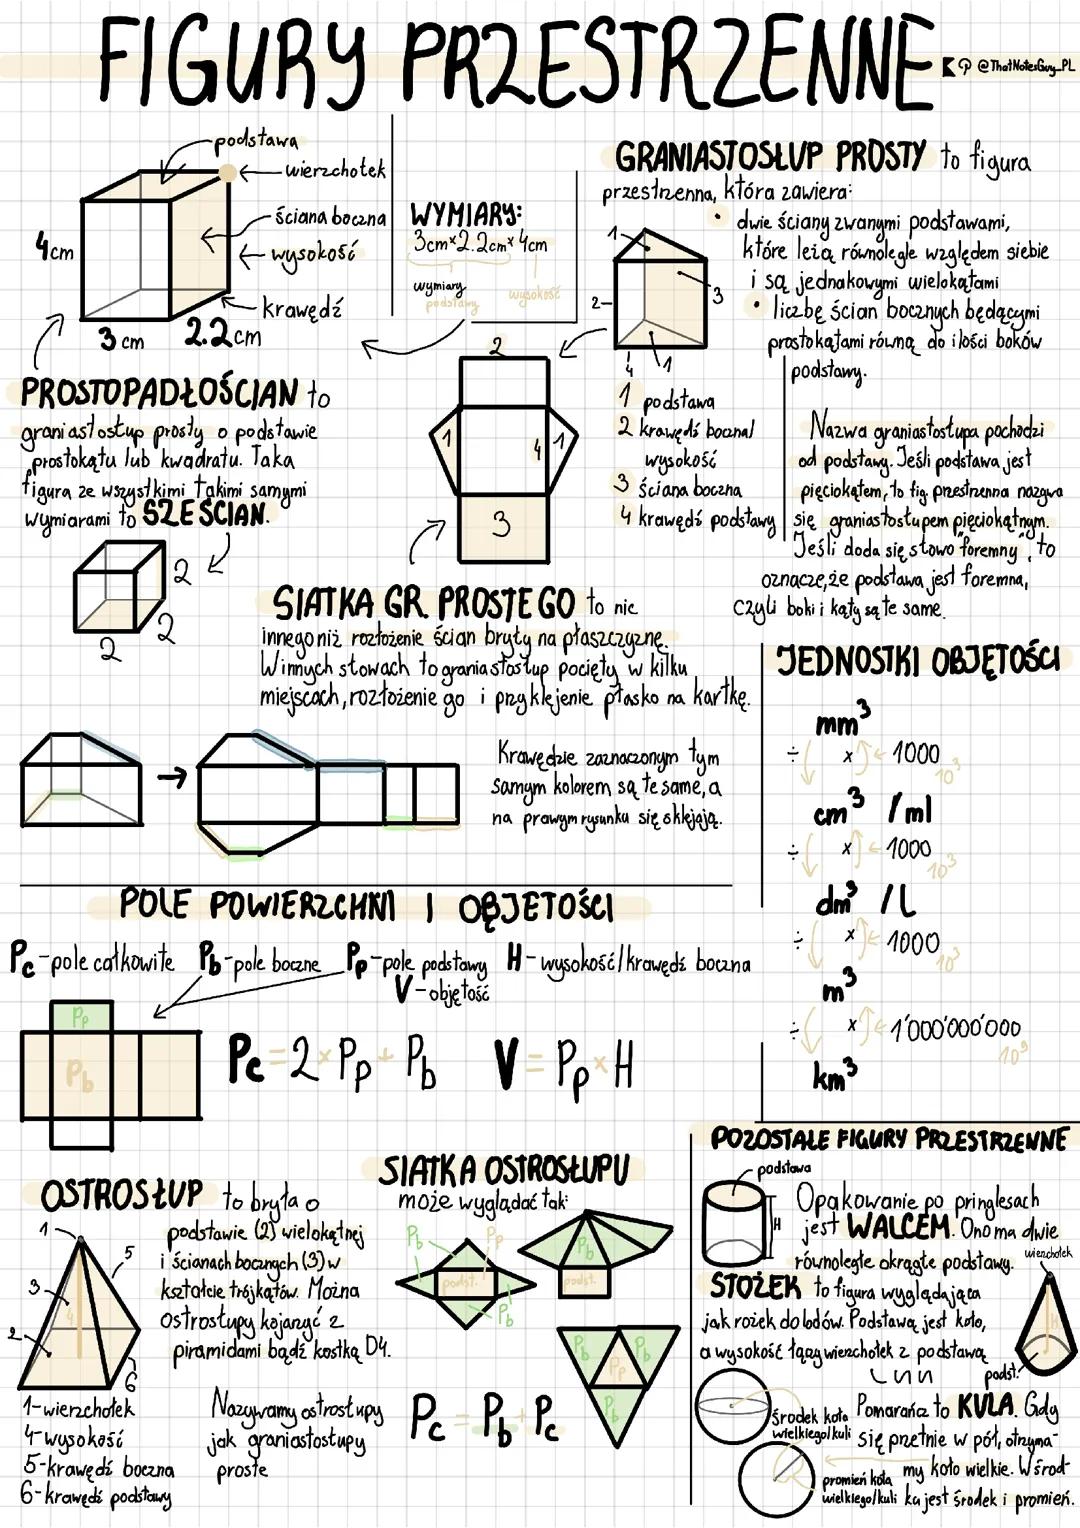 FIGURY PRZESTRZENNE
@ThatNotesGuy_PL
podstawa
wierzchołek
ściana boczna
wysokość
krawędź
4cm
3cm
2.2cm
WYMIARY:
3cm×2.2cm×4cm
wymiary
podstawy
wysokość
GRANIASTOSŁUP PROSTY to figura
przestrzenna, która zawiera:
• dwie ściany zwanymi podstawami,
które leżą równolegle względem siebie
i są jednakowymi wielokątami
• liczbę ścian bocznych będącymi
prostokątami równą do ilości boków
podstawy.
1
2
3
4
1
1 podstawa
2 krawędź boczna/
wysokość
3 ściana boczna
4 krawędź podstawy
Nazwa graniastosłupa pochodzi
od podstawy. Jeśli podstawa jest
pięciokątem, to fig. przestrzenna nazywa
się graniastosłupem pięciokątnym.
Jeśli doda się słowo "foremny", to
oznacze, że podstawa jest foremna,
czyli boki i kąty są te same.
PROSTOPADŁOŚCIAN to
graniastosłup prosty o podstawie
prostokątu lub kwadratu. Taka
figura ze wszystkimi takimi samymi
wymiarami to SZEŚCIAN.
2
2
2
2
1
4
1
3
SIATKA GR. PROSTEGO to nic
innego niż rozłożenie ścian bryły na płaszczyznę.
W innych słowach to graniastosłup pocięty w kilku
miejscach, rozłożenie go i przyklejenie płasko na kartkę.
Krawędzie zaznaczonym tym
samym kolorem są te same, a
na prawym rysunku się sklejają.
JEDNOSTKI OBJĘTOŚCI
mm³
÷ × 1000
10³
cm³ / ml
÷ × 1000
10³
dm³ / L
÷ × 1000
10³
m³
÷ × 1'000'000'000
10⁹
km³
POLE POWIERZCHNI I OBJĘTOŚCI
Pc - pole całkowite Pb - pole boczne Pp - pole podstawy H - wysokość/krawędź boczna
V - objętość
Pp
Pb
Pc = 2 × Pp + Pb V = Pp × H
OSTROSŁUP to bryła o
podstawie (2) wielokątnej
i ścianach bocznych (3) w
kształcie trójkątów. Można
ostrosłupy kojarzyć z
piramidami bądź kostką D4.
1
5
3
4
2
6
1-wierzchołek
4-wysokość
5-krawędź boczna
6-krawędź podstawy
Nazywamy ostrosłupy
jak graniastosłupy
proste
SIATKA OSTROSŁUPU
może wyglądać tak:
Pb
Pp
podst.
Pb
Pb
podst.
Pb
Pb
Pp
Pb
Pc = Pb + Pc
POZOSTAŁE FIGURY PRZESTRZENNE
podstawa
H
Opakowanie po pringlesach
jest WALCEM. Ono ma dwie
równoległe okrągłe podstawy.
wierzchołek
STOŻEK to figura wyglądająca
jak rożek do lodów. Podstawą jest koło,
a wysokość łączy wierzchołek z podstawą
h
podst.
Środek koła
wielkiego/kuli
Pomarańcz to KULA. Gdy
się przetnie w pół, otrzyma-
my koło wielkie. W środ-
ka jest środek i promień.
promień koła
wielkiego/kuli